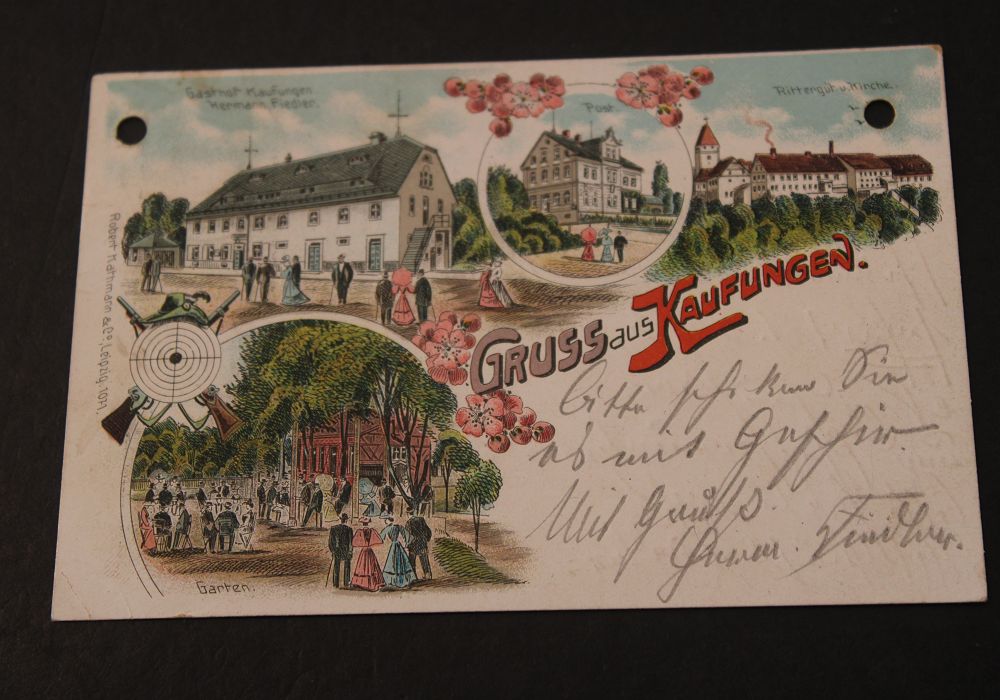 Gasthof Kaufungen
Hermann Fiedler.
Post.
Rittergut u. Kirche.
Robert Kathmann & Co., Leipzig. 1071.
GRUSS aus KAUFUNGEN.
Garten.
Bitte schiken Sie
es mit Geschir
Mit Gruß.
Fiedler.